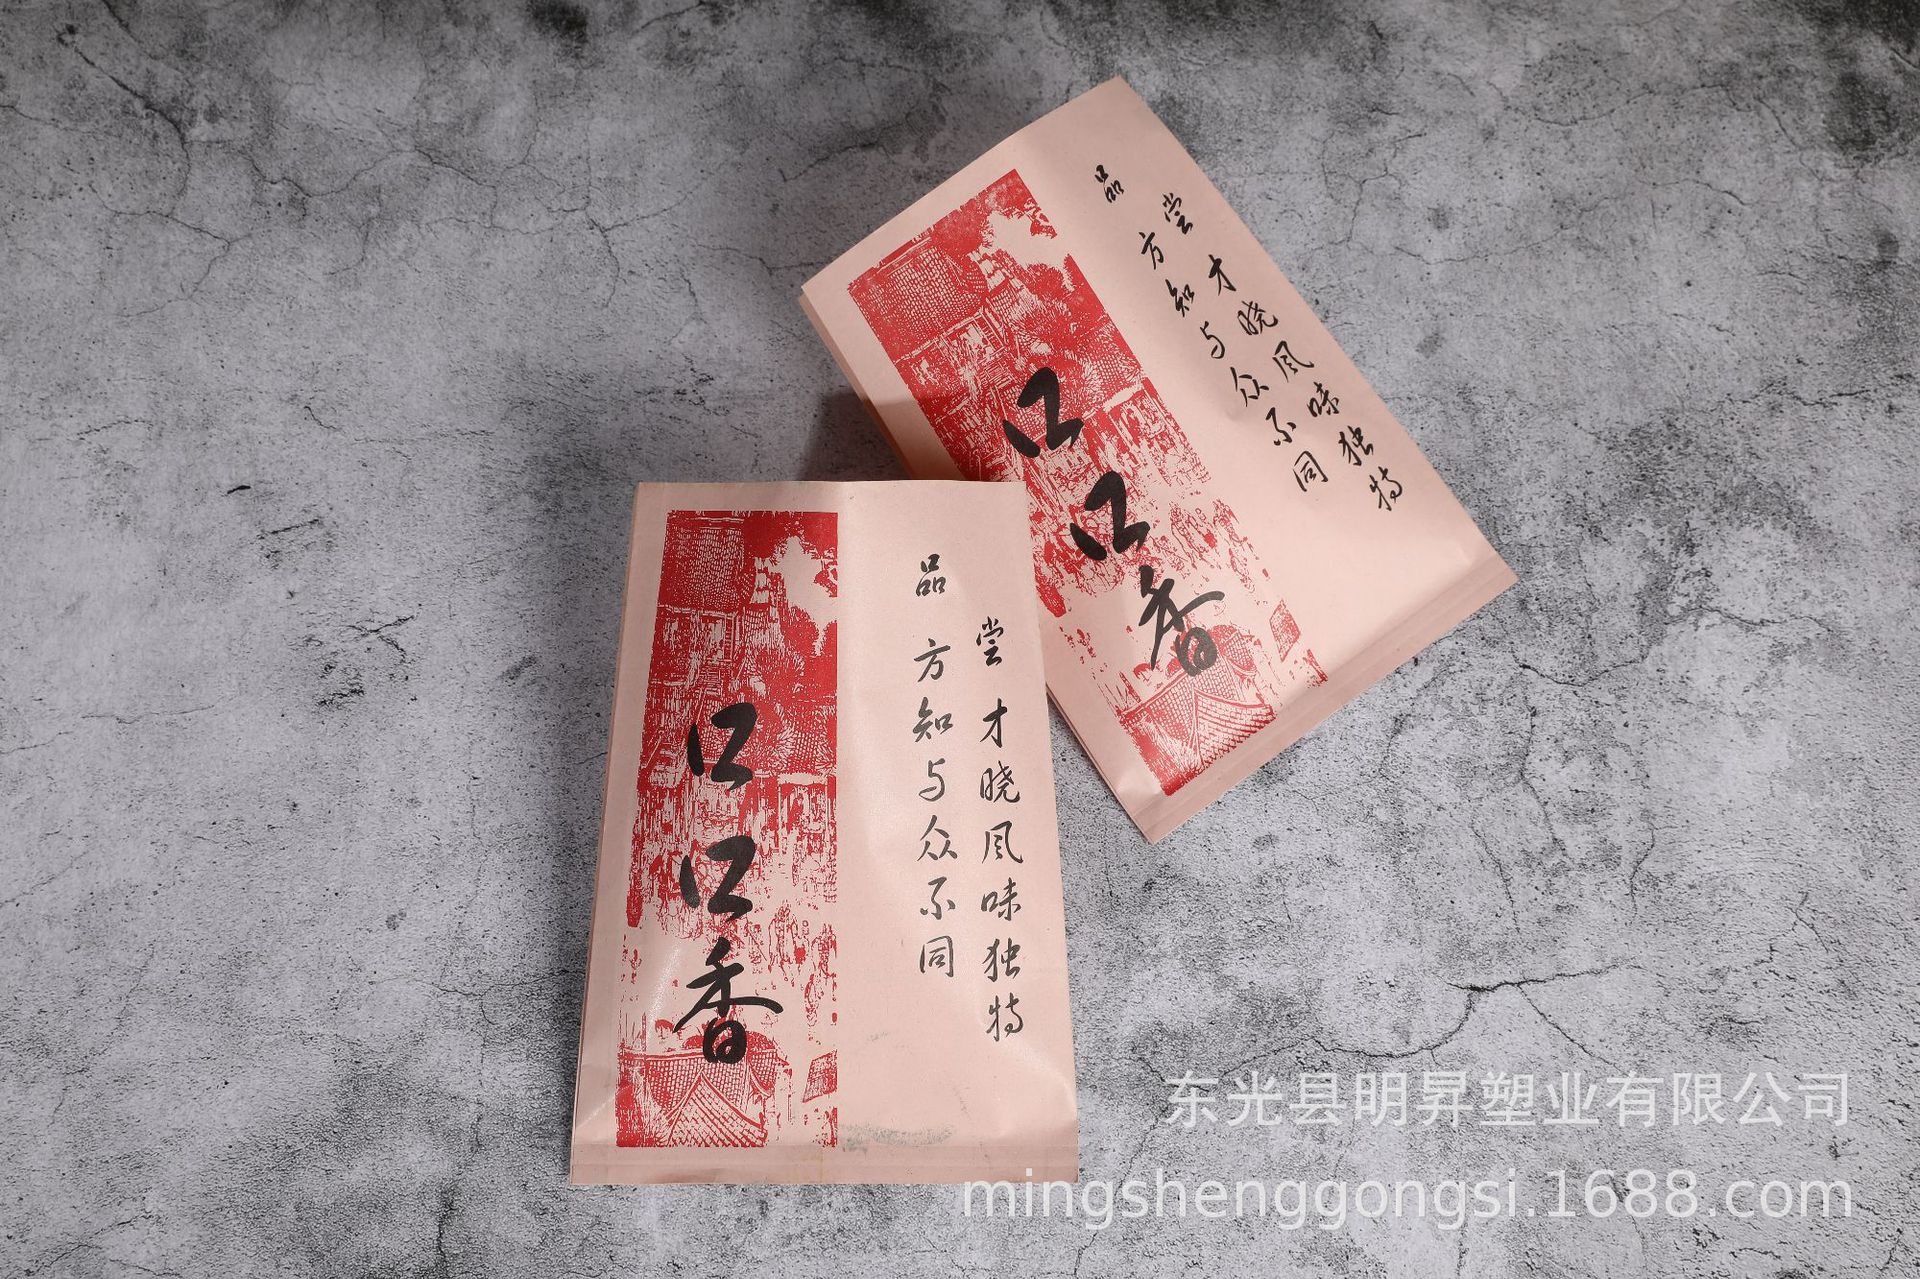 口口香
尝才晓风味独特
品方知与众不同
口口香
尝才晓风味独特
品方知与众不同
东光县明昇塑业有限公司
mingshenggongsi.1688.com